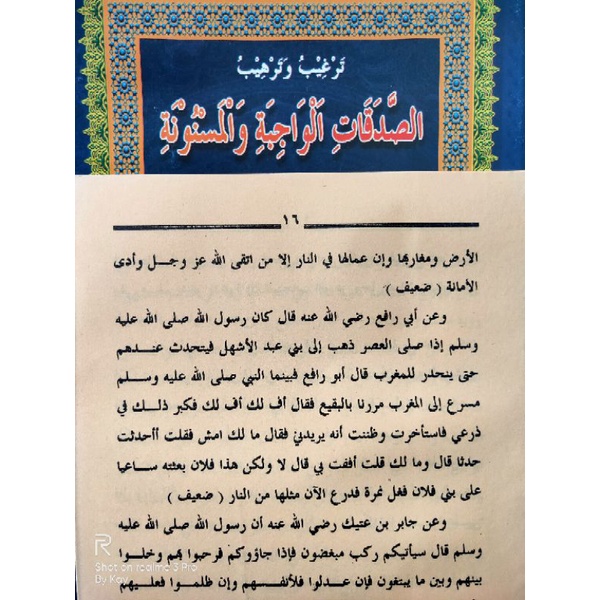 تَرْغِيْبُ وَتَرْهِيْبُ
الصَّدَقَاتِ الْوَاجِبَةِ وَالْمَسْنُوْنَةِ
١٦
الأرض ومغاربها وإن عمالها في النار إلا من اتقى الله عز وجل وأدى
الأمانة ( ضعيف ) .
وعن أبي رافع رضي الله عنه قال كان رسول الله صلى الله عليه
وسلم إذا صلى العصر ذهب إلى بني عبد الأشهل فيتحدث عندهم
حتى ينحدر للمغرب قال أبو رافع فبينما النبي صلى الله عليه وسلم
مسرع إلى المغرب مررنا بالبقيع فقال أف لك أف لك فكبر ذلك في
ذرعي فاستأخرت وظننت أنه يريدني فقال ما لك امش فقلت أأحدثت
حدثا قال وما لك قلت أففت بي قال لا ولكن هذا فلان بعثته ساعيا
على بني فلان فغل نمرة فدرع الآن مثلها من النار ( ضعيف )
وعن جابر بن عتيك رضي الله عنه أن رسول الله صلى الله عليه
وسلم قال سيأتيكم ركب مبغضون فإذا جاؤوكم فرحبوا بهم وخلوا
بينهم وبين ما يبتغون فإن عدلوا فلأنفسهم وإن ظلموا فعليهم
R
Shot on realme 3 Pro
By Kay